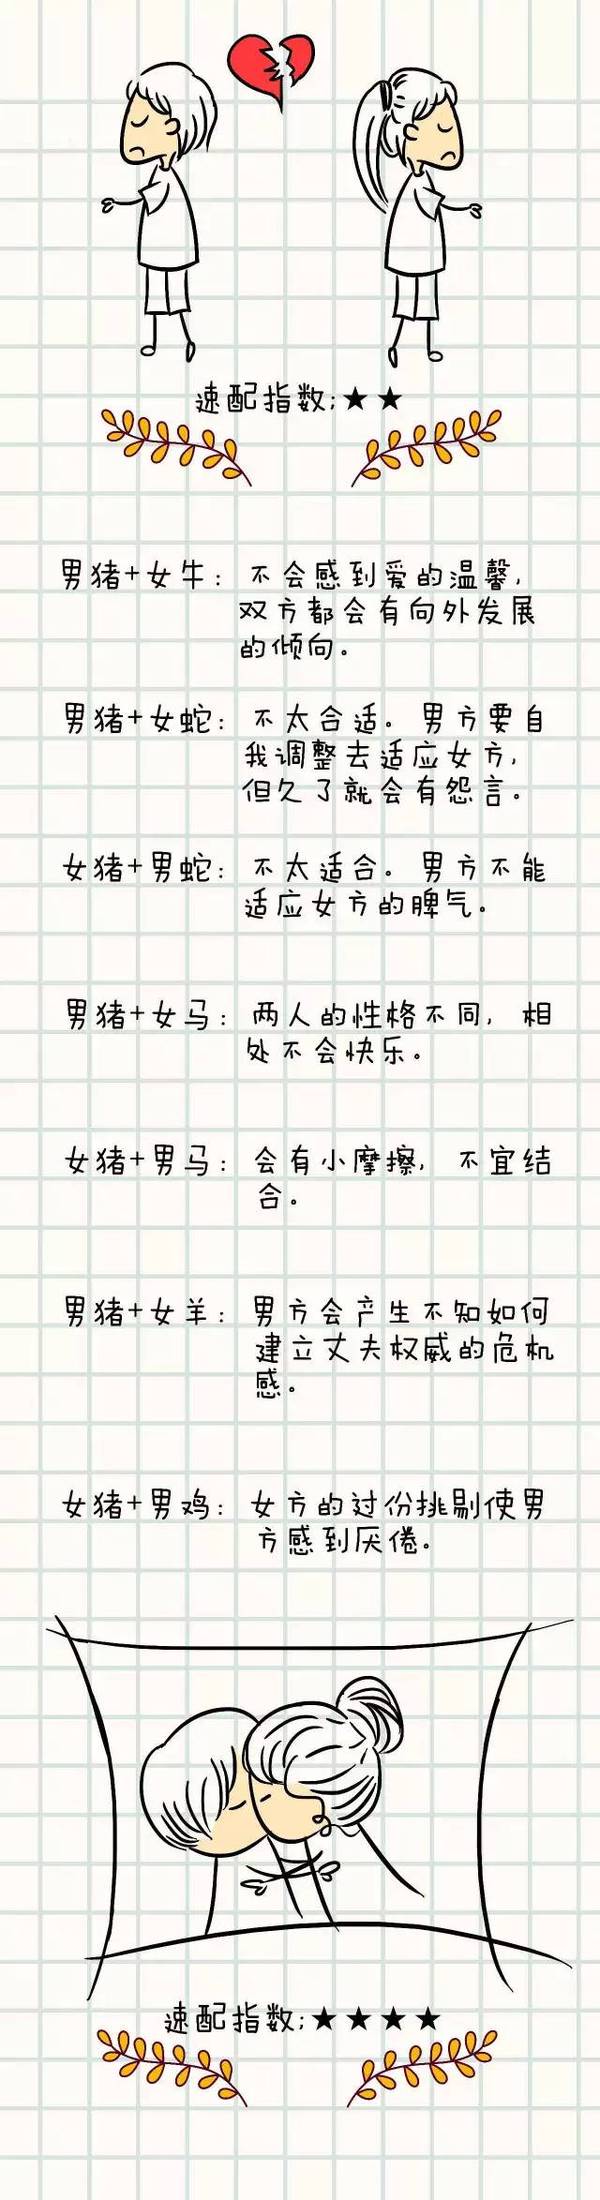 速配指数:★★
男猪+女牛: 不会感到爱的温馨,
双方都会有向外发展
的倾向。
男猪+女蛇: 不太合适。男方要自
我调整去适应女方,
但久了就会有怨言。
女猪+男蛇: 不太适合。男方不能
适应女方的脾气。
男猪+女马: 两人的性格不同, 相
处不会快乐。
女猪+男马: 会有小摩擦, 不宜结
合。
男猪+女羊: 男方会产生不知如何
建立丈夫权威的危机
感。
女猪+男鸡: 女方的过份挑剔使男
方感到厌倦。
速配指数:★★★★